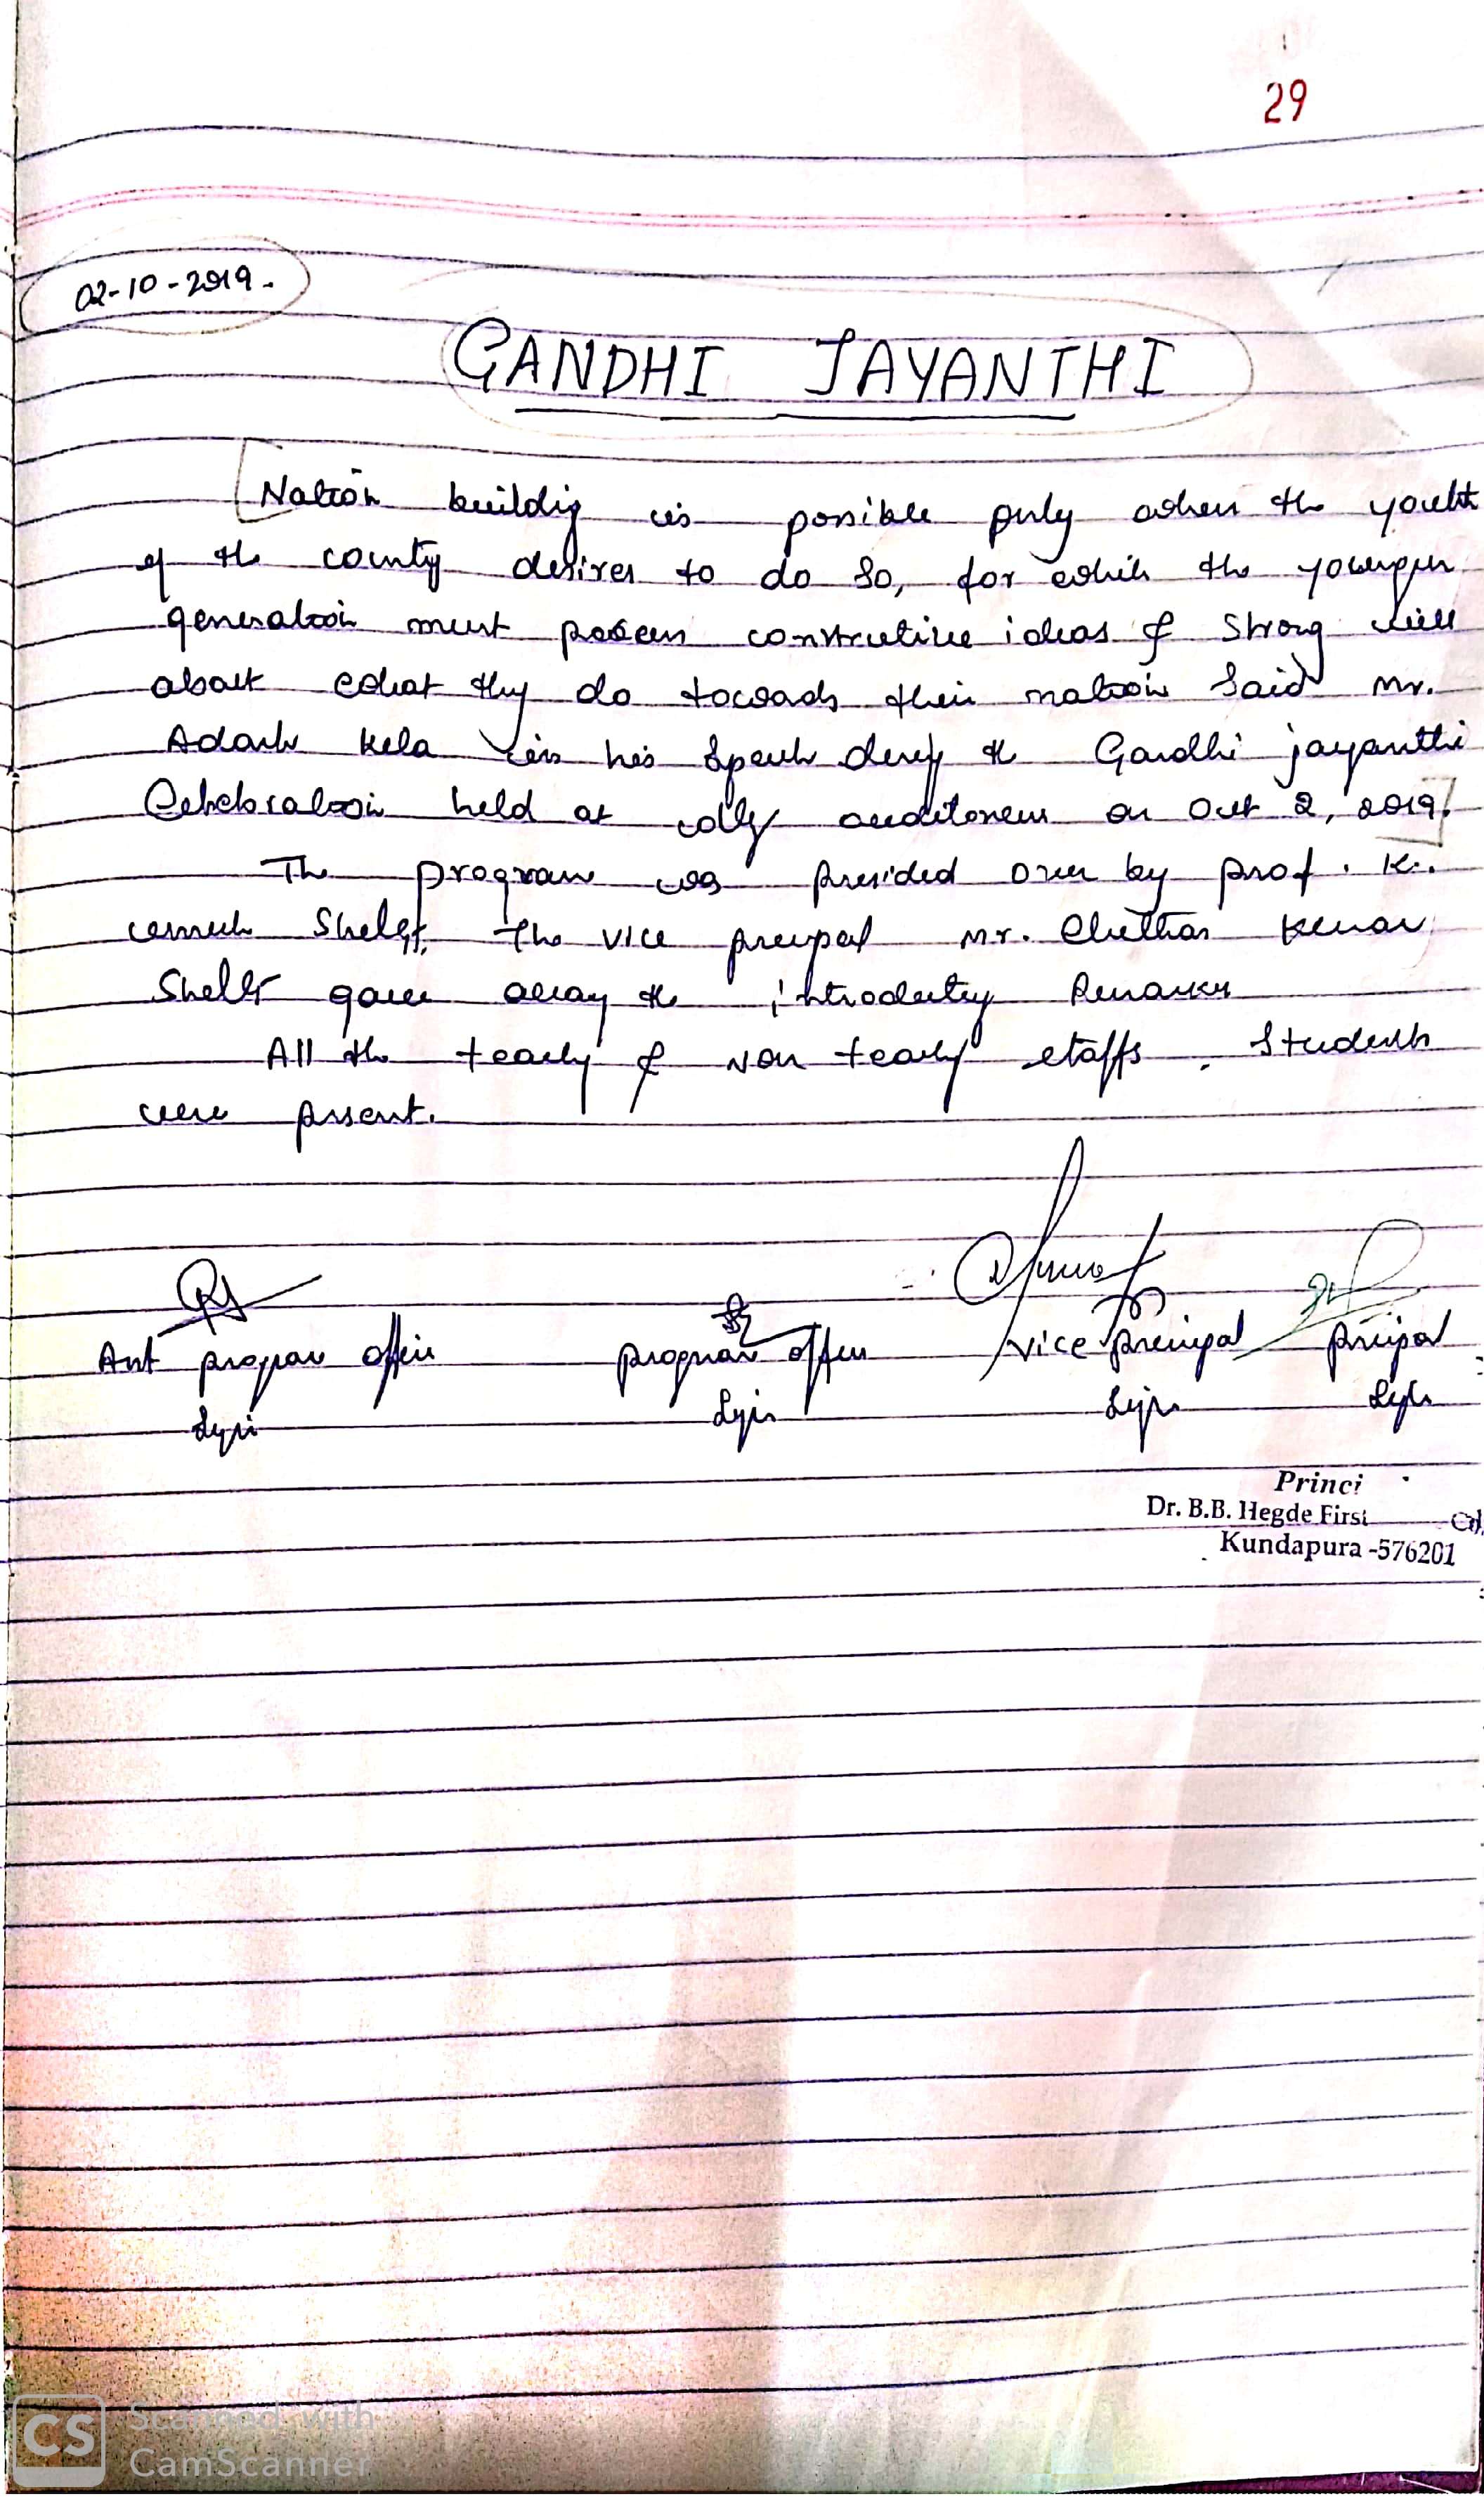 29
02-10-2019.
GANDHI JAYANTHI
Nation buildig is possible only when the youth
of the county desires to do so, for which the younger
generation must possess constructive ideas & strong will
about what they do towards their nation said Mr.
Adarsh Kela in his speech the Gandhi jayanthi
Celebration held at auditorium on Oct 2, 2019.
The program was presided over by prof. K.
Shetty. The vice principal Mr. Chethan
Shetty gave away the introductory Remarks
All the & Non staffs Students
were present.
Asst program officer program officer Vice principal principal
Princi
Dr. B.B. Hegde First
Kundapura -576201
CS Scanned with
CamScanner